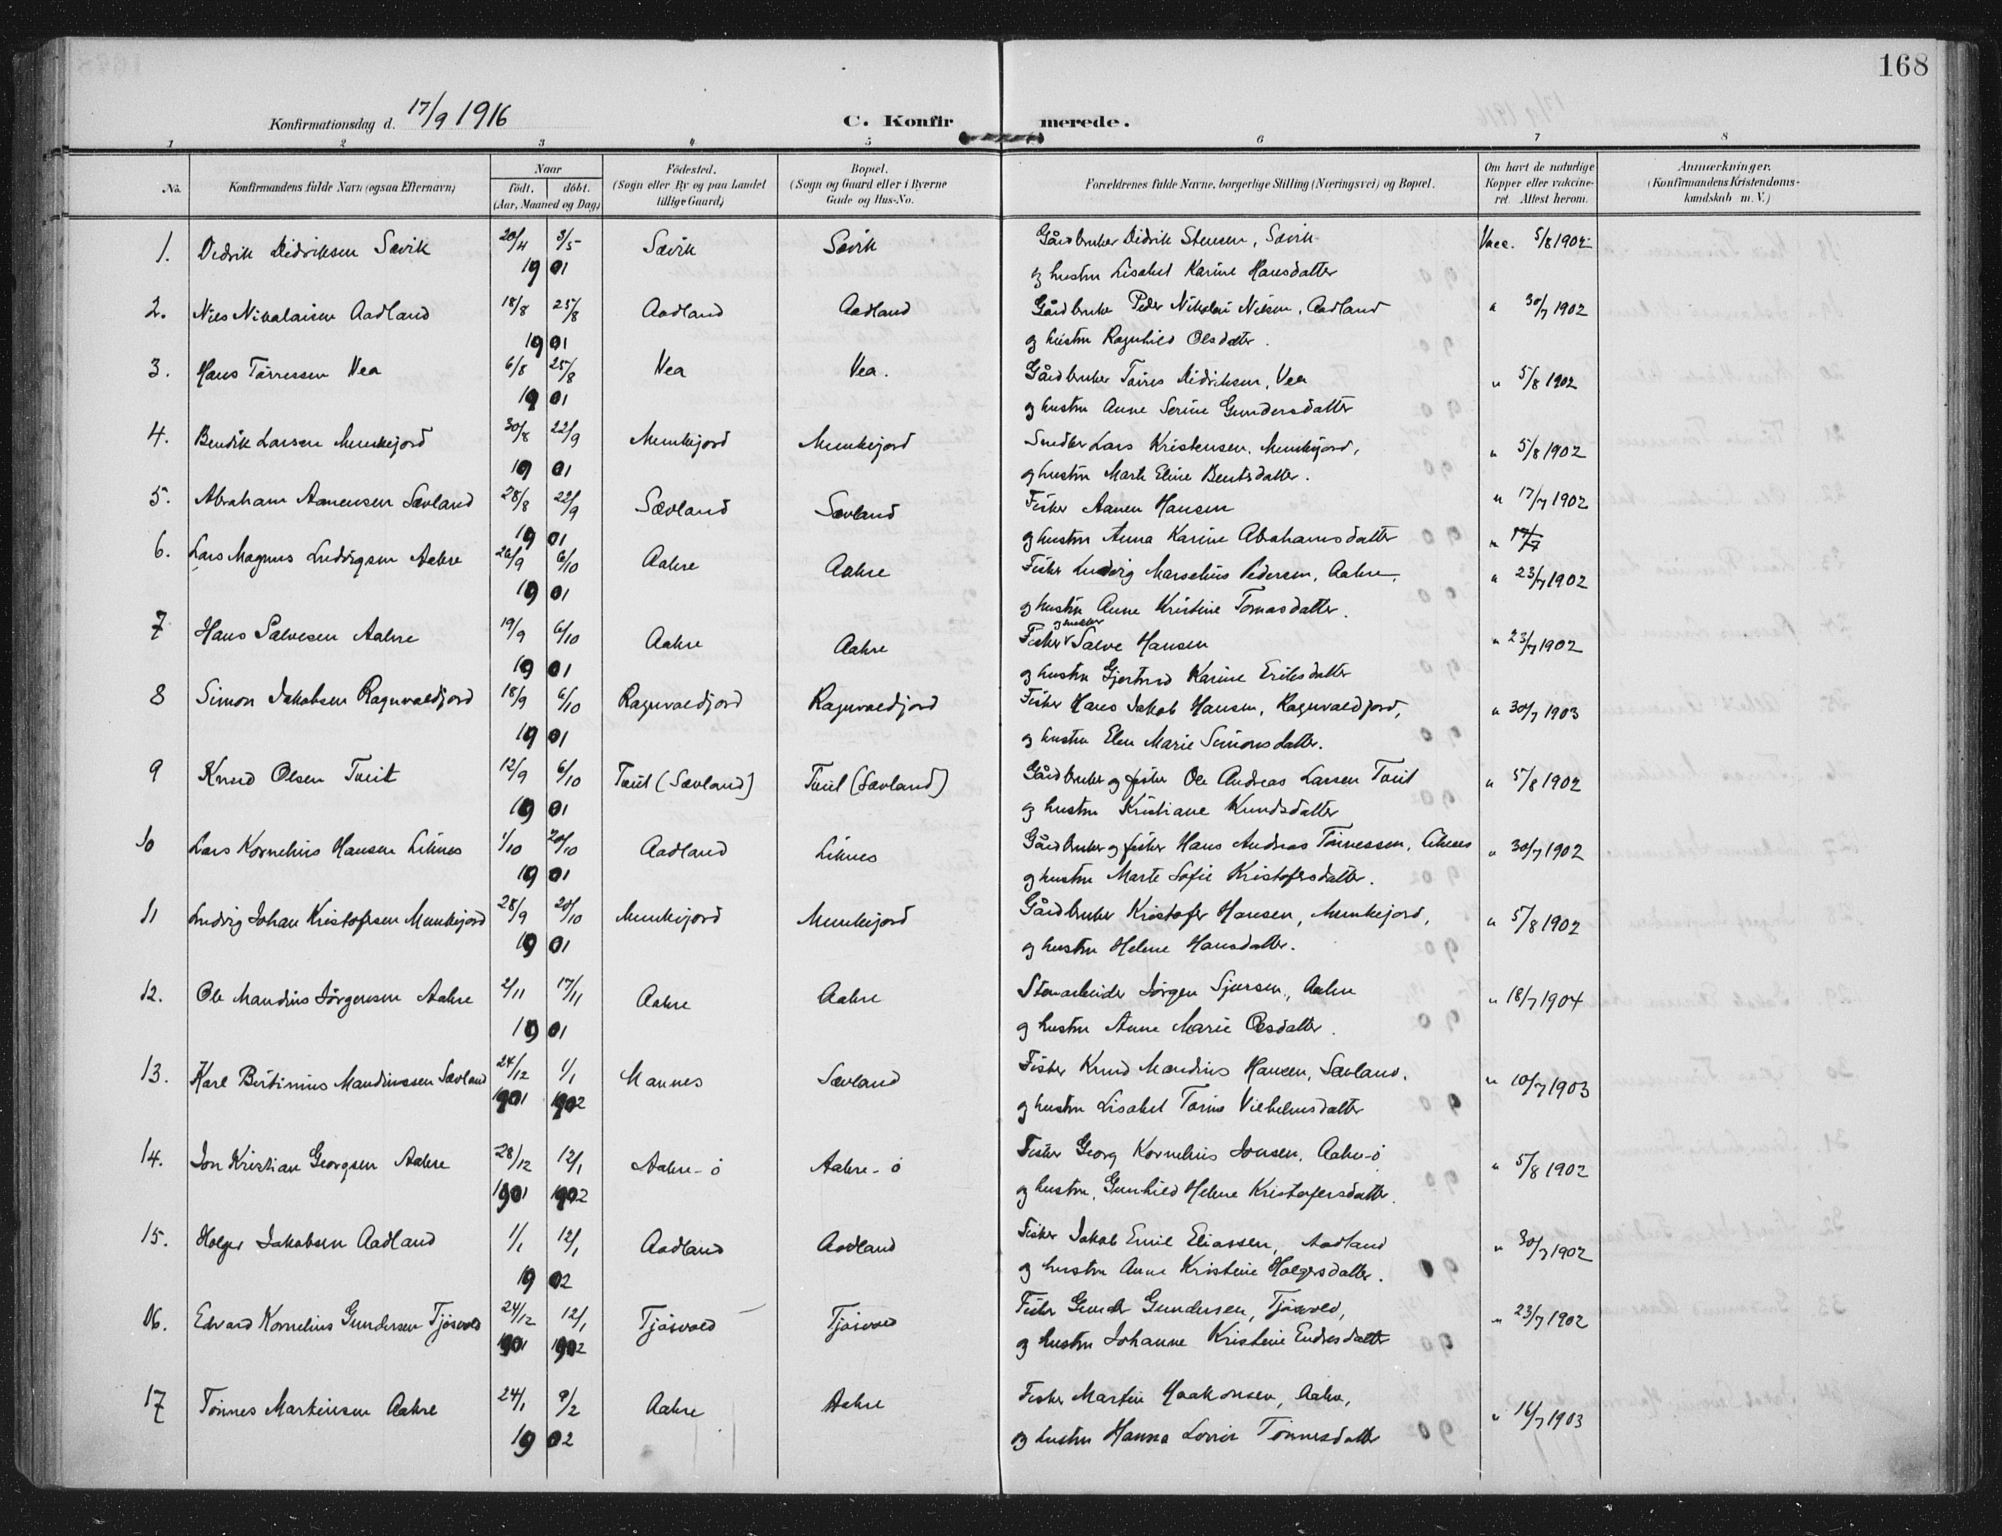 168
Konfirmationsdag d. 17/9 1916
C. Konfirmerede.
1 2 3 4 5 6 7 8
No.
Konfirmandens fulde Navn (ogsaa Efternavn)
Naar
født. døbt.
(Aar, Maaned og Dag)
Fødested.
(Sogn eller By og paa Landet
tillige Gaard)
Bopæl.
(Sogn og Gaard eller i Byerne
Gade og Hus-No.
Forældrenes fulde Navne, borgerlige Stilling (Næringsvei) og Bopæl.
Om havt de naturlige
Kopper eller vakcine-
ret. Attest herom.
Anmærkninger.
(Konfirmandens Kristendoms-
kundskab m. V.)
1. Didrik Didriksen Sævik 20/4 3/5 Sævik Sævik Gårdbruker Didrik Stensen, Sævik Vacc. 5/8 1902
1901 og hustru Lisabet Karine Hansdatter
2. Nils Nikolaisen Aadland 18/8 25/8 Aadland Aadland Gårdbruker Peder Nikolai Nilsen, Aadland " 30/7 1902
1901 og hustru Ragnhild Olsdatter.
3. Hans Tørressen Vea 6/8 25/8 Vea Vea. Gårdbruker Tørres Didriksen, Vea " 5/8 1902
1901 og hustru Anne Serine Gundersdatter
4. Bendik Larsen Munkejord 30/8 22/9 Munkejord Munkejord Snedker Lars Kristensen, Munkejord, " 5/8 1902
1901 og hustru Marte Eline Bentsdatter.
5. Abraham Aanensen Sævland 28/8 22/9 Sævland Sævland Fisker Aanen Hansen " 17/7 1902
1901 og hustru Anna Karine Abrahamsdatter " 17/7
6. Lars Magnus Ludvigsen Aakre 26/9 6/10 Aakre Aakre Fisker Ludvig Marselius Pedersen, Aakre, " 23/7 1902
1901 og hustru Anne Kristine Tomasdatter.
7 Hans Salvesen Aakre 19/9 6/10 Aakre Aakre Fisker Salve Hansen " 23/7 1902
1901 og hustru Gjertrud Karine Eriksdatter
8 Simon Jakobsen Ragnvaldjord 18/9 6/10 Ragnvaldjord Ragnvaldjord Fisker Hans Jakob Hansen, Ragnvaldjord, " 30/7 1903
1901 og hustru Elen Marie Simonsdatter.
9 Knud Olsen Tveit 12/9 6/10 Tveit (Sævland) Tveit (Sævland) Gårdbruker og fisker Ole Andreas Larsen Tveit " 5/8 1902
1901 og hustru Kristiane Knudsdatter
10 Lars Kornelius Hansen Liknes 1/10 20/10 Aadland Liknes Gårdbruker og fisker Hans Andreas Tønnessen, Liknes " 30/7 1902
1901 og hustru Marte Sofie Kristofersdatter.
11 Ludvig Johan Kristofersen Munkejord 28/9 20/10 Munkejord Munkejord Gårdbruker Kristofer Hansen, Munkejord, " 5/8 1902
1901 og hustru Helene Hansdatter.
12. Ole Mandius Jørgensen Aakre 2/11 17/11 Aakre Aakre Stenarbeider Jørgen Sjursen, Aakre " 18/7 1904
1901 og hustru Anne Marie Olsdatter.
13. Karl Bertinius Mandiussen Sævland 24/12 1/1 Mannes Sævland Fisker Knud Mandius Hansen, Sævland. " 10/7 1903
1901 1902 og hustru Lisabet Vilhelmsdatter
14. Jon Kristian Georgsen Aakre 28/12 12/1 Aakre-ø Aakre-ø Fisker Georg Kornelius Jonsen, Aakre-ø " 5/8 1902
1901 1902 og hustru, Gunhild Helene Kristofersdatter.
15. Holger Jakobsen Aadland 1/1 12/1 Aadland Aadland Fisker Jakob Emil Eliassen, Aadland " 30/7 1902
1902 og hustru Anne Kristine Holgersdatter.
16. Edvard Kornelius Gundersen Tjøsvold 24/12 12/1 Tjøsvold Tjøsvold Fisker Gunder Gundersen, Tjøsvold, " 23/7 1902
1901 1902 og hustru Johanne Kristine Endresdatter
17 Tønnes Martinsen Aakre 24/1 9/2 Aakre Aakre Fisker Martin Haakonsen, Aakre, " 16/7 1903
1902 og hustru Hanna Lovise Tønnesdatter